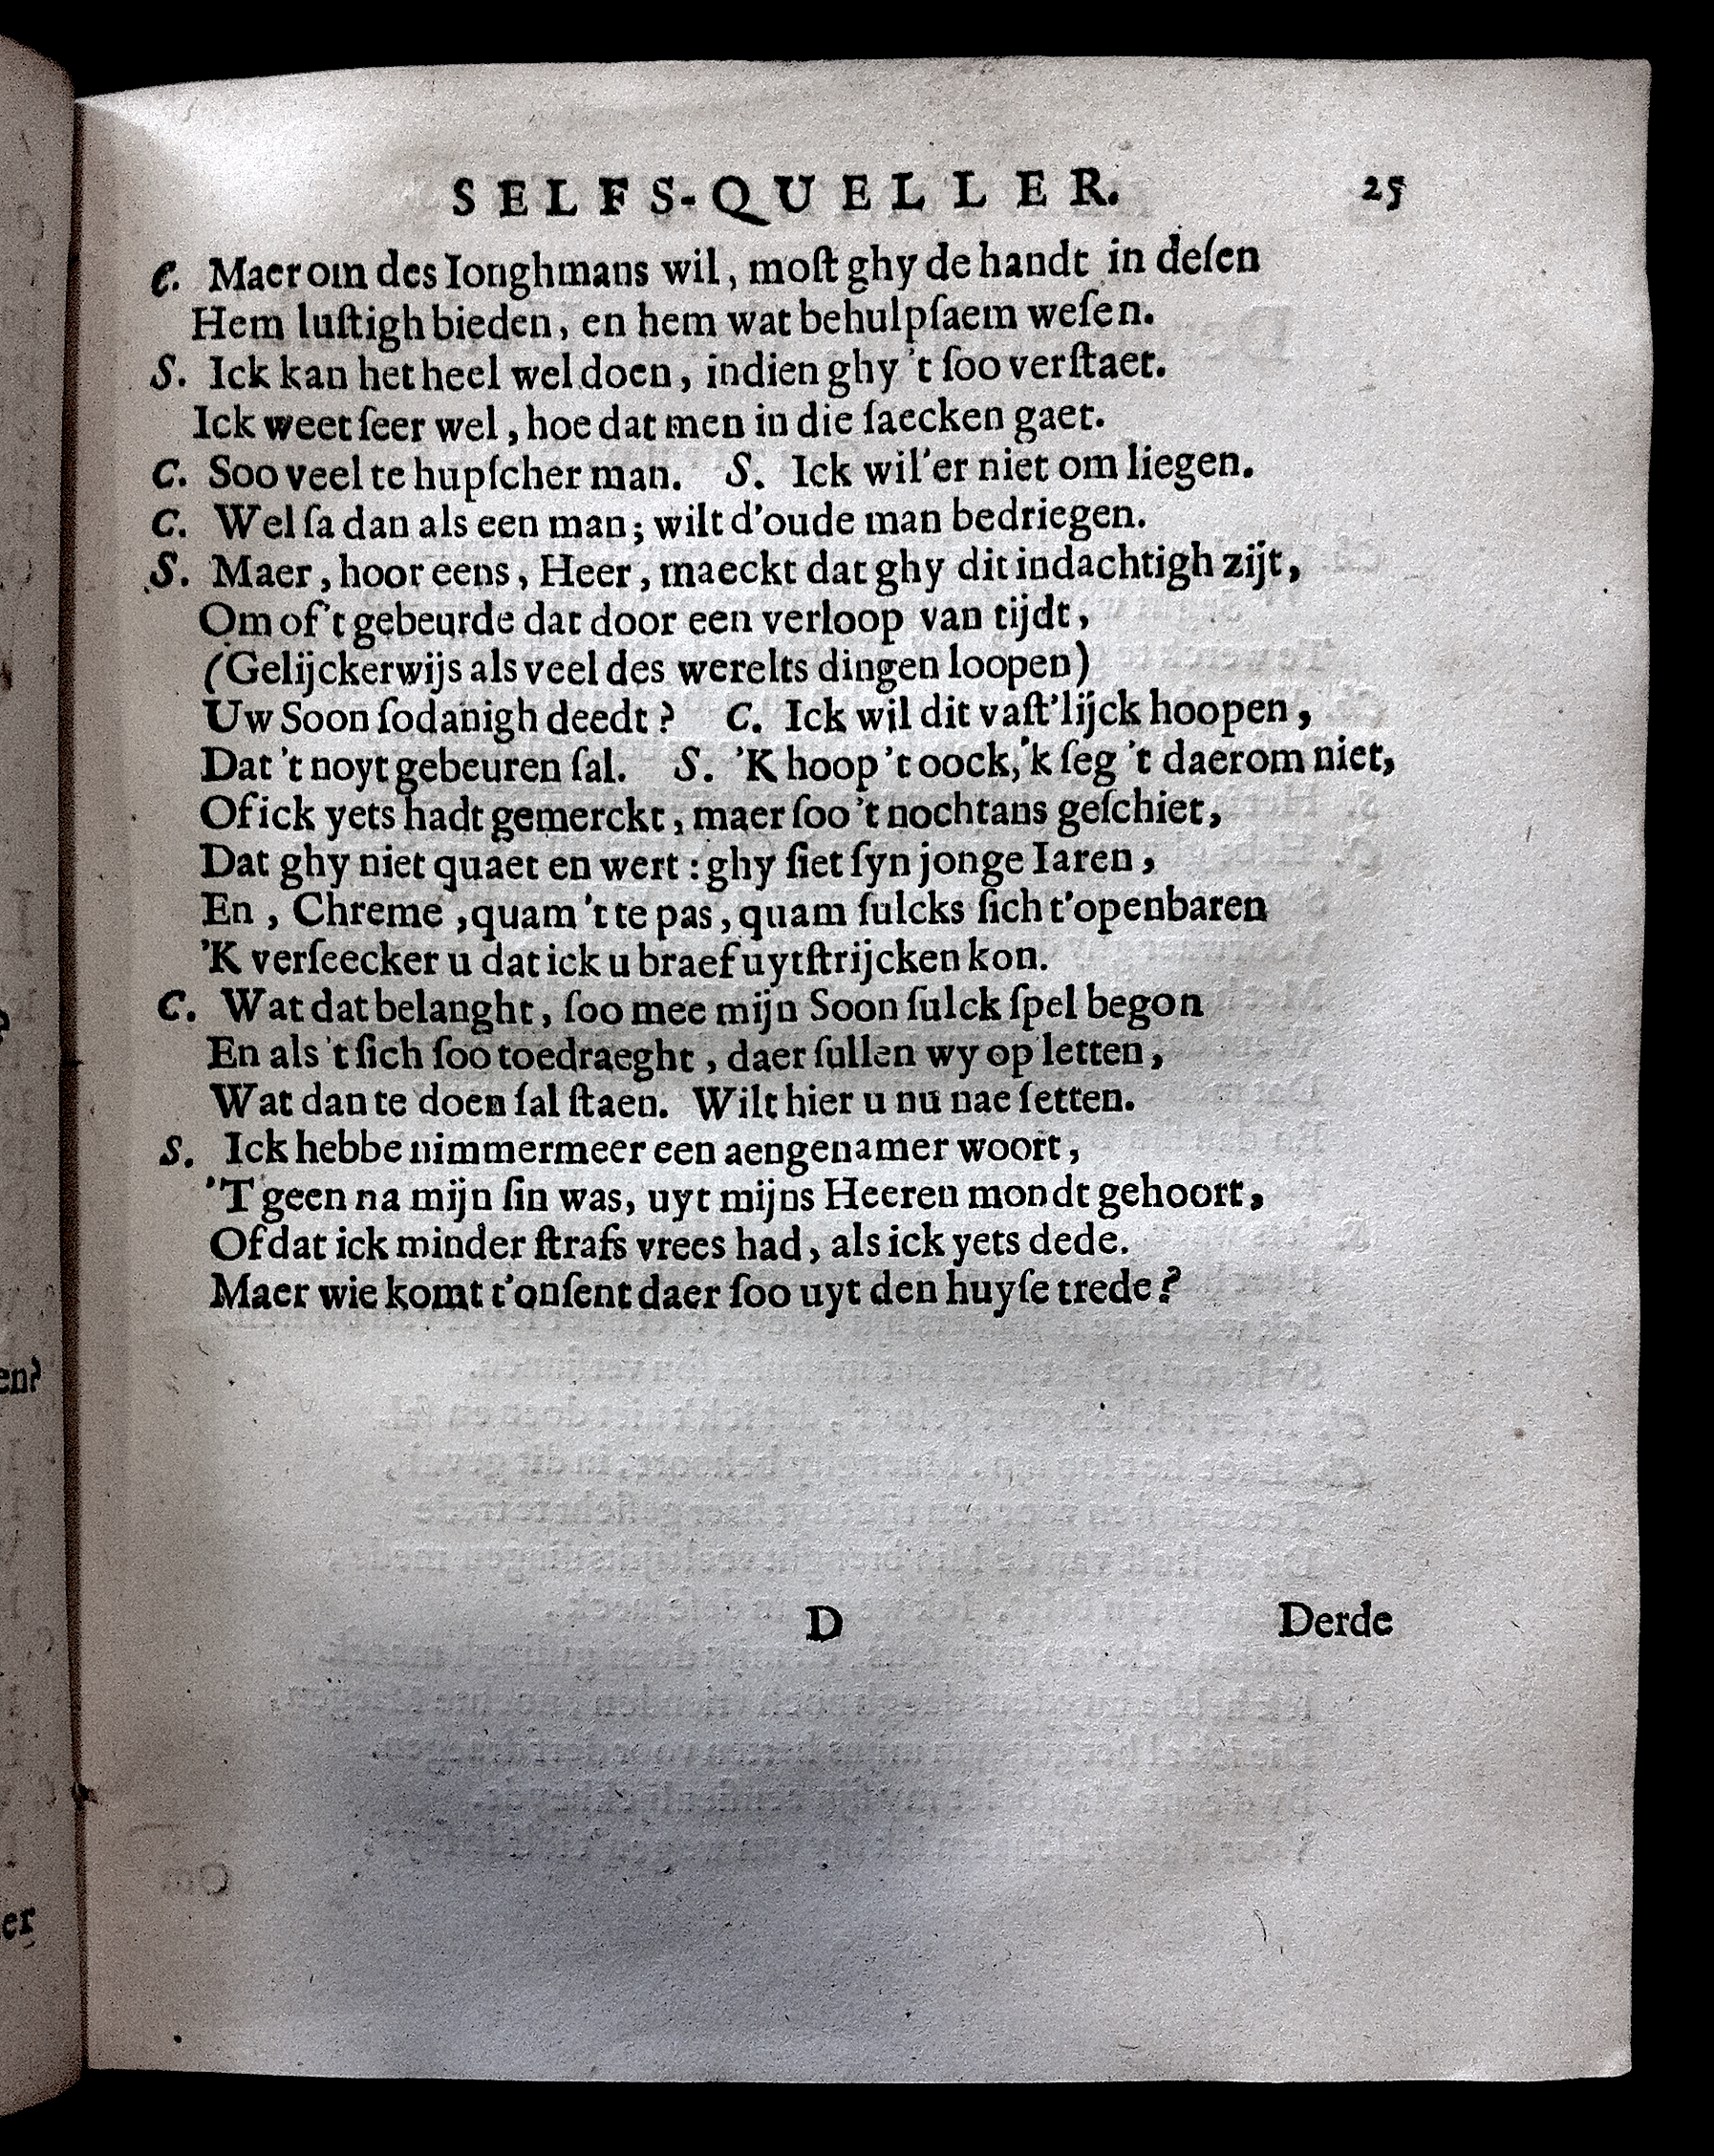 SELFS-QUELLER. 25
C. Maer om des Ionghmans wil, moſt ghy de handt in deſen
Hem luſtigh bieden, en hem wat behulpſaem weſen.
S. Ick kan het heel wel doen, indien ghy 't ſoo verſtaet.
Ick weet ſeer wel, hoe dat men in die ſaecken gaet.
C. Soo veel te hupſcher man. S. Ick wil'er niet om liegen.
C. Wel ſa dan als een man; wilt d'oude man bedriegen.
S. Maer, hoor eens, Heer, maeckt dat ghy dit indachtigh zijt,
Om of't gebeurde dat door een verloop van tijdt,
(Gelijckerwijs als veel des werelts dingen loopen)
Uw Soon ſodanigh deedt? C. Ick wil dit vaſt'lijck hoopen,
Dat 't noyt gebeuren ſal. S. 'K hoop 't oock, 'k ſeg 't daerom niet,
Of ick yets hadt gemerckt, maer ſoo 't nochtans geſchiet,
Dat ghy niet quaet en wert: ghy ſiet ſyn jonge Iaren,
En, Chreme, quam 't te pas, quam ſulcks ſich t'openbaren
'K verſeecker u dat ick u braef uytſtrijcken kon.
C. Wat dat belanght, ſoo mee mijn Soon ſulck ſpel begon
En als 't ſich ſoo toedraeght, daer ſullen wy op letten,
Wat dan te doen ſal ſtaen. Wilt hier u nu nae ſetten.
S. Ick hebbe nimmermeer een aengenamer woort,
'T geen na mijn ſin was, uyt mijns Heeren mondt gehoort,
Of dat ick minder ſtrafs vrees had, als ick yets dede.
Maer wie komt t'onſent daer ſoo uyt den huyſe trede?
D Derde
en?
er